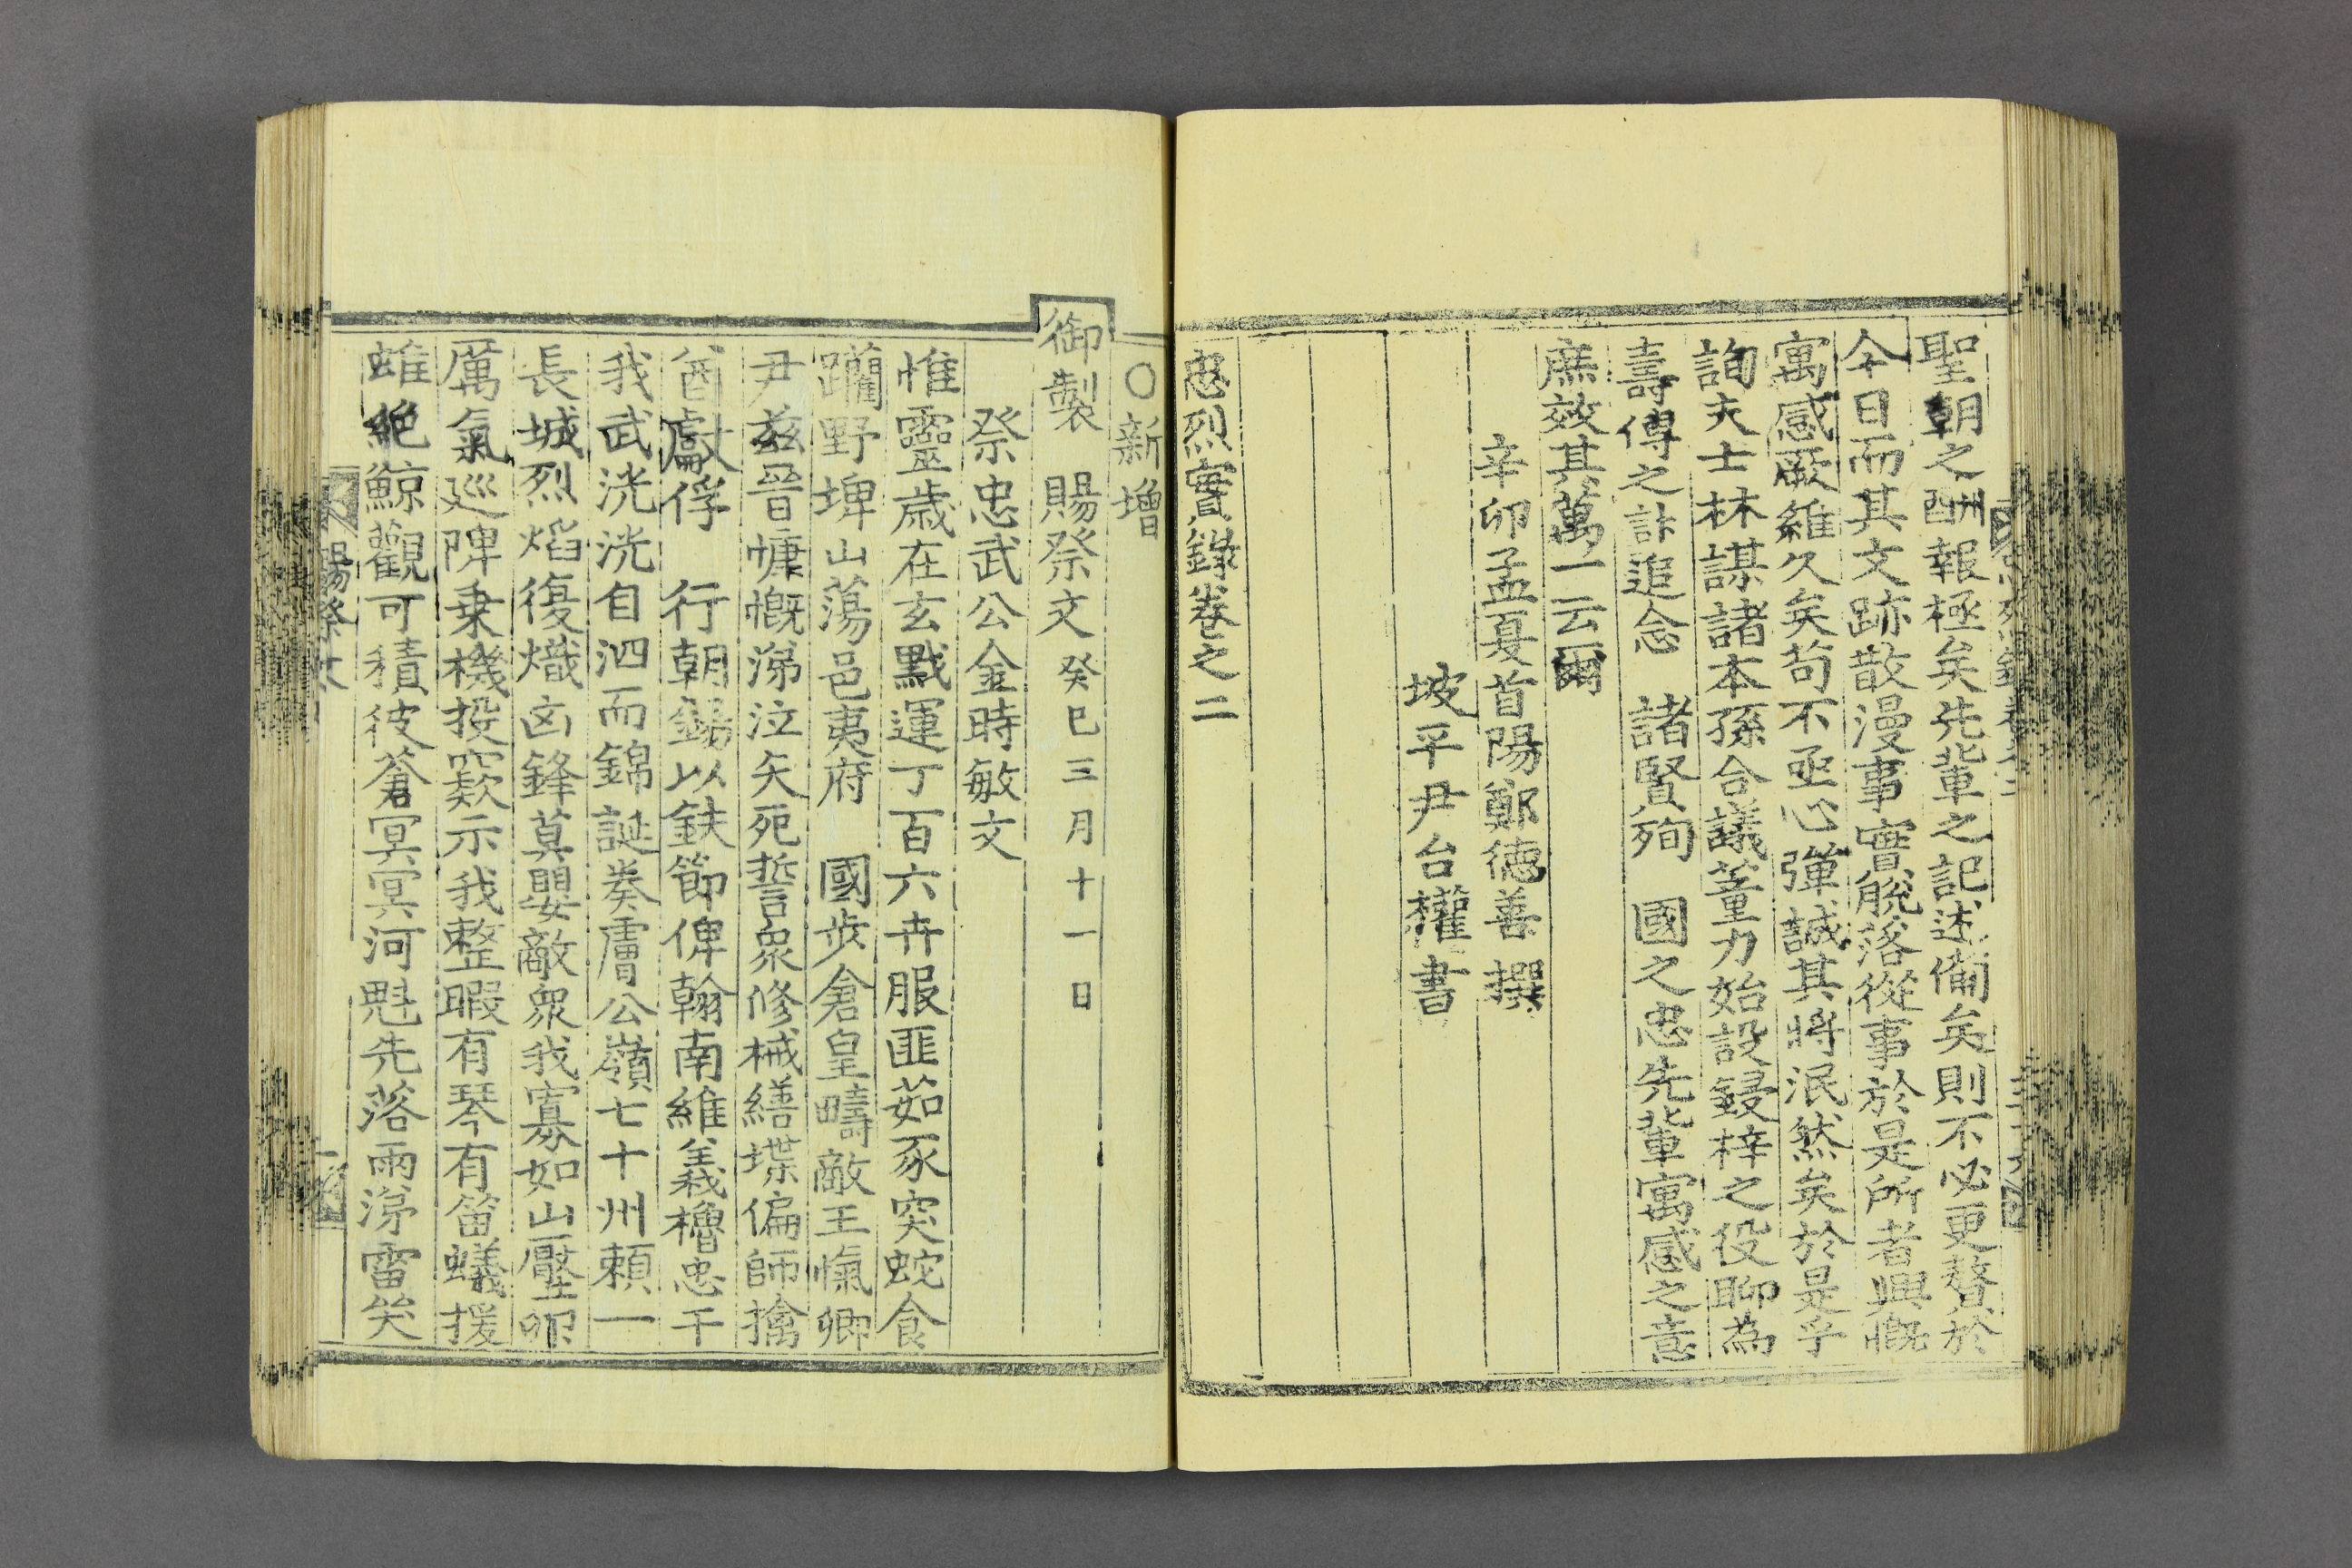 聖朝之酬報極矣先輩之記述備矣則不必更贅於
今日而其文跡散漫事實脫落從事於是所者興慨
寓感厥雖久矣苟不亟心彈誠其將泯然矣於是乎
詢夫士林謀諸本孫合議董力始設鋟梓之役聊為
壽傳之計追念 諸賢殉 國之忠先輩寓感之意
庶效其萬一云爾
辛卯孟夏首陽鄭德善撰
坡平尹台權書
忠烈實錄卷之二
○新增
御製 賜祭文 癸巳三月十一日
祭忠武公金時敏文
惟靈歲在玄黓運丁百六卉服匪茹豕突蛇食
躪野埤山蕩邑夷府 國步倉皇疇敵王愾卿
尹茲晉慷慨涕泣矢死誓衆修械繕堞偏師擒
酋獻俘 行朝錫以鈇節俾翰南維義櫓忠干
我武洸洸自泗而錦誕奏膚公嶺七十州賴一
長城烈焰復熾凶鋒莫嬰敵衆我寡如山壓卵
厲氣巡陴乗機投窾示我整暇有琴有笛蟻援
蜼絶鯨觀可積彼蒼冥冥河魁先落雨涕雷笑
賜祭文